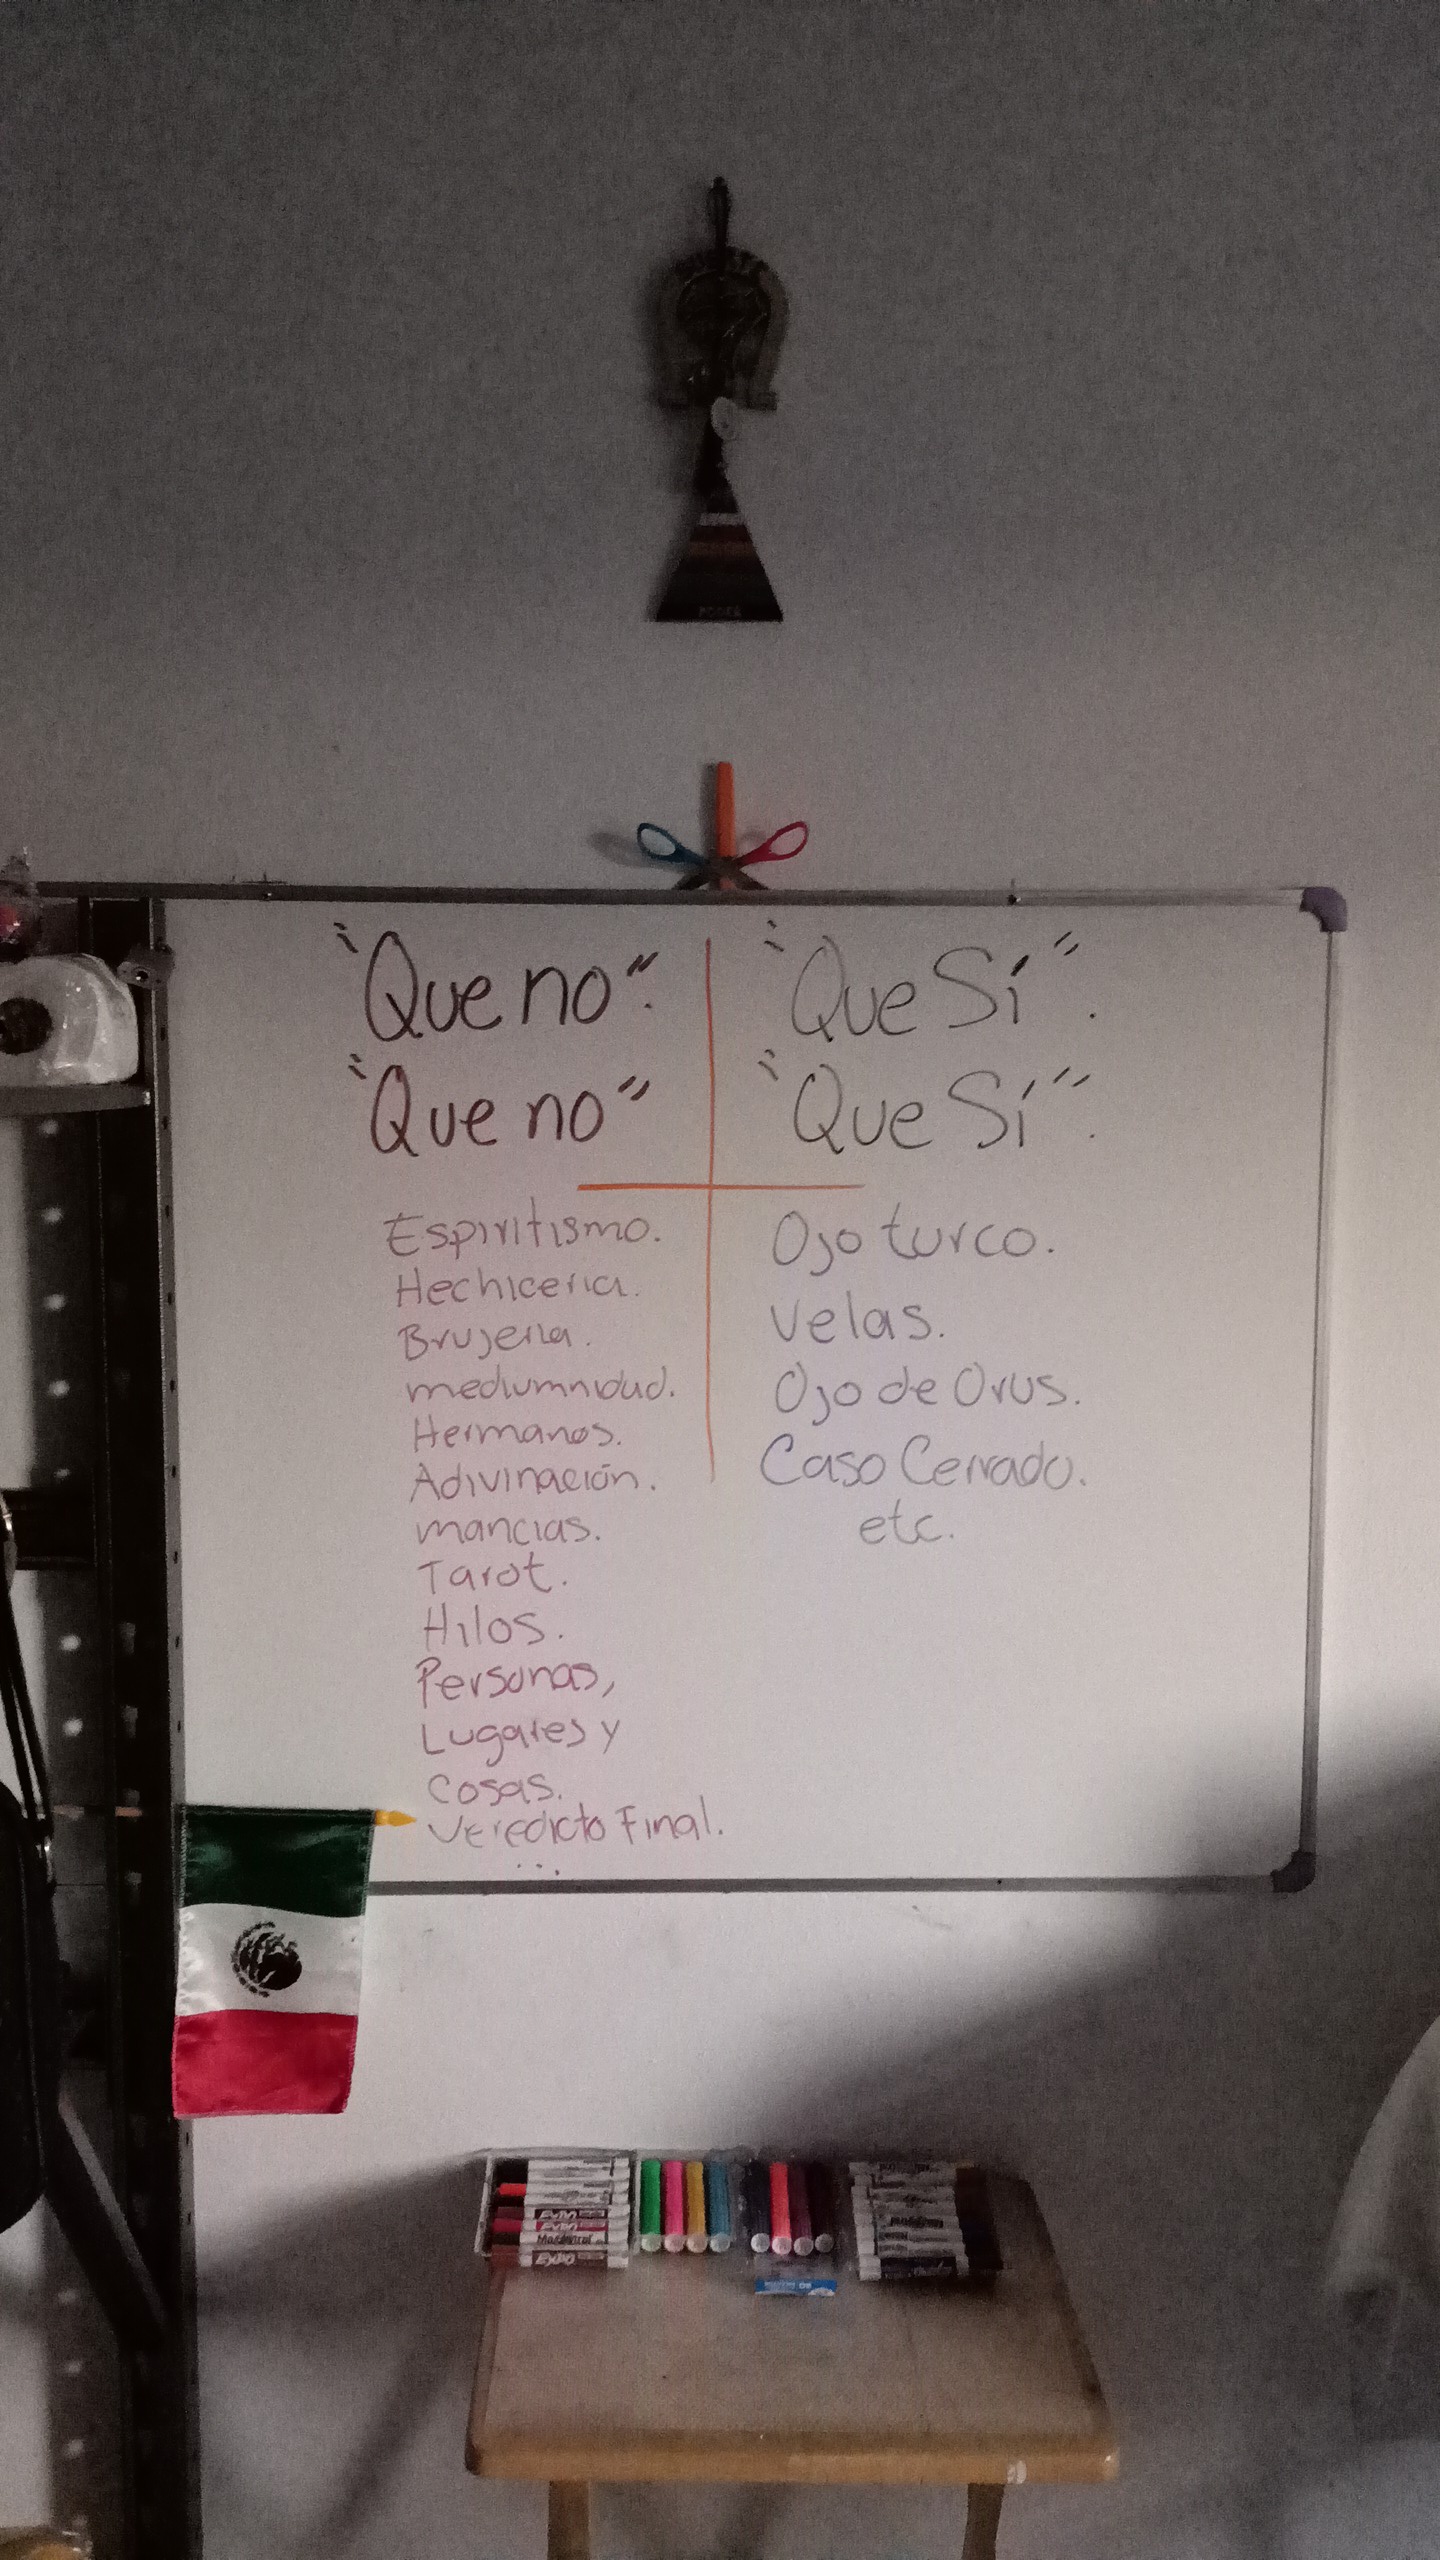 PODER
"Que no".
"Que no"
Espiritismo.
Hechiceria.
Brujeria.
mediumnidad.
Hermanos.
Adivinación.
mancias.
Tarot.
Hilos.
Personas,
Lugares y
Cosas.
Veredicto Final.
...
"Que Sí".
"Que Sí".
Ojo turco.
Velas.
Ojo de Orus.
Caso Cerrado.
etc.
EXPO
EXPO
Magistral
EXPO